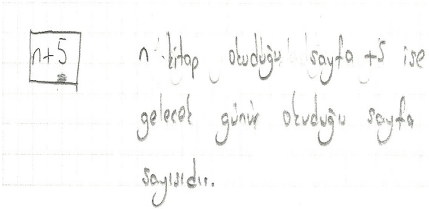 n+5
n kitap okuduğu sayfa +5 ise
gelecek günün okuduğu sayfa
sayısıdır.